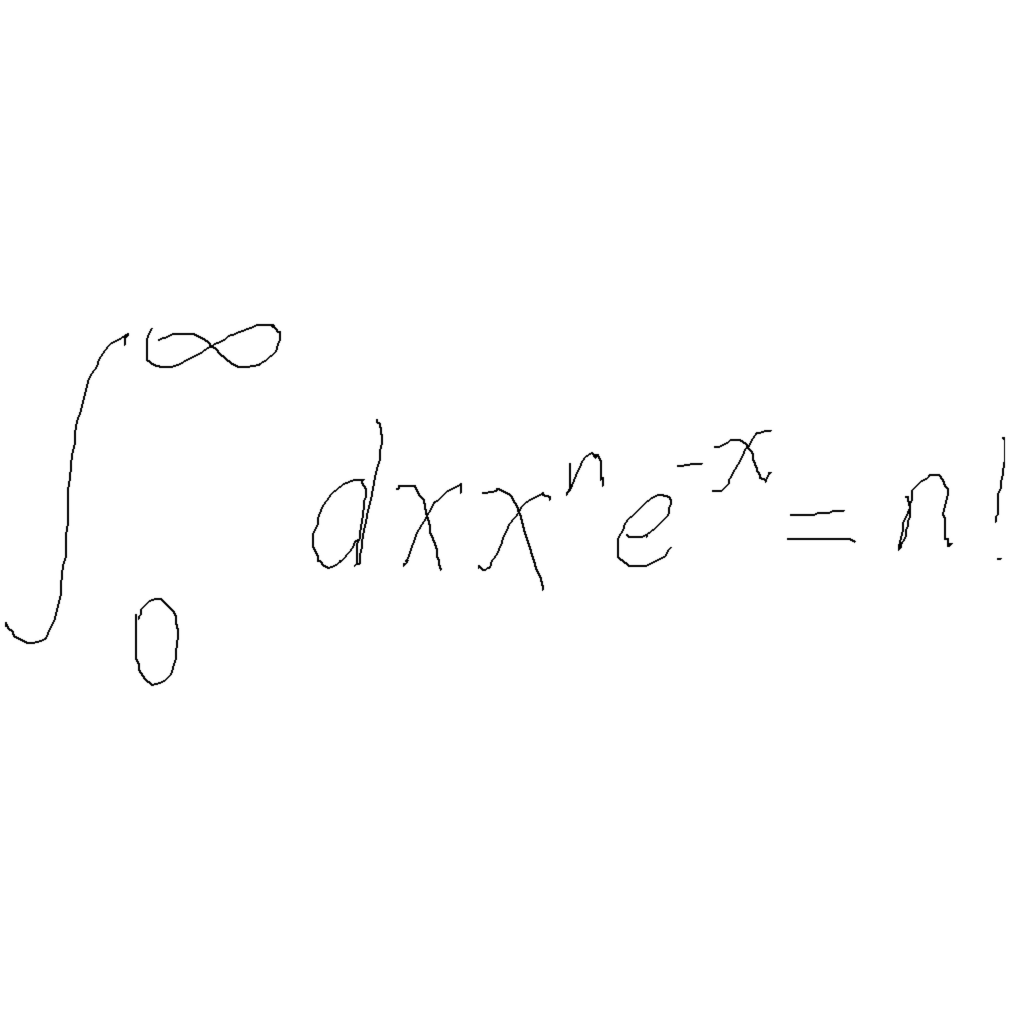 \int_0^\infty dx x^n e^{-x} = n!